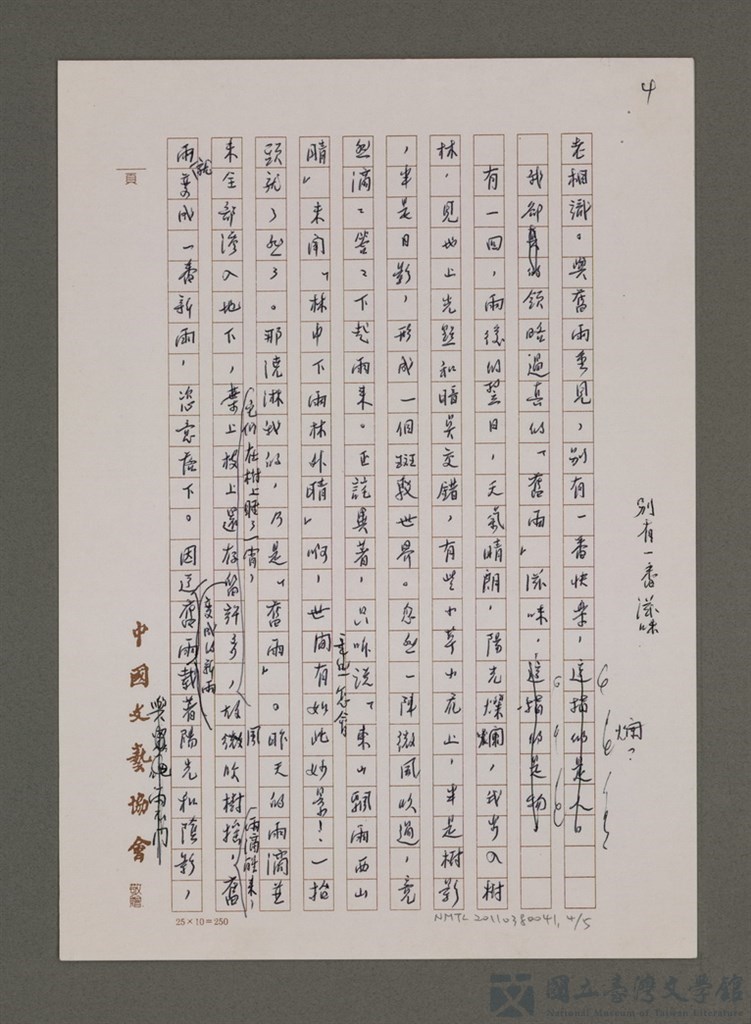 4
別有一番滋味
爛?
老相識。與舊雨重見,別有一番快樂,這指的是人。
我卻真的領略過真的「舊雨」滋味,這指的是物。
有一回,雨後的翌日,天氣晴朗,陽光燦爛,我步入樹
林,見地上光點和暗點交錯,有些小草小花上,半是樹影
,半是日影,形成一個斑駁世界。忽然一陣微風吹過,竟
然滴滴答答下起雨來。正詫異著,只聽說「東山飄雨西山
晴」,怎會
來鬧「林中下雨林外晴」啊,世間有如此妙景!一抬
頭就了然了。那澆淋我的,乃是「舊雨」。昨天的雨滴並
未全部滲入地下,葉上枝上還存留許多,
它們在樹上睡了一宵,
風
微吹樹搖,
雨滴醒來,
舊
雨就變成一番新雨,恣意落下。因這舊雨
變成的新雨
載著陽光和陰影,
頁
中國文藝協會
敬贈
25×10=250
NMTL 20110380041, 4/5
國立臺灣文學館
National Museum of Taiwan Literature